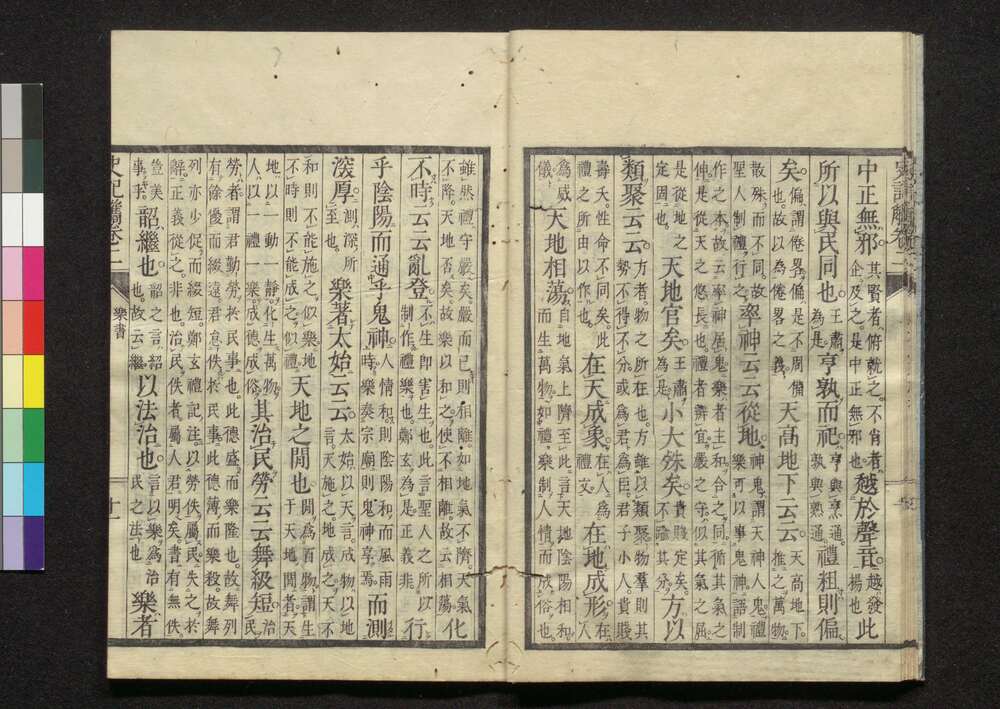 中正無邪其賢者俯就之不肖者企及之是中正無邪也越於聲音越發揚也此
所以與民同也王肅為是亨孰而祀亨與烹通孰與熟通禮粗則偏
矣偏謂倦畧偏是不周備也故以為倦畧之義天高地下云云天高地下推之萬物
散殊而不同故聖人制禮行之率神云云從地神鬼謂天神人鬼禮樂可以事鬼神謂制
作之本故云率神居鬼樂者主和合之同循其氣之伸是從天之悠長也禮者辨宜嚴之守似其氣之屈
是從地之定固也天地官矣王肅為是小大殊矣貴賤定矣不踰其分方以
類聚云云方者物之所在也方雖以類聚物羣則其勢不得不分或為君為臣君子小人貴賤
壽夭性命不同矣此禮之所由以作也在天成象在人為禮文在地成形在人
為威儀天地相蕩自地氣上隮至此言天地陰陽相和而生萬物如禮樂制人情而成俗也
雖然禮守嚴矣嚴而已則相離如地氣不隮天氣不降天地否矣故樂以和之使不相離故云相蕩化
不時云云亂登不生即害生也此言聖人之所以制作禮樂也鄭玄為是正義非行
乎陰陽而通乎鬼神人情和則陰陽和而風雨時樂奏宗廟則鬼神享焉而測
深厚測深所至也樂著太始云云太始以天言成物以地言天施之地成之天不
和則不能施之似樂地不時則不能成之似禮天地之閒也閒為百物謂生于天地閒者天
地以一動一靜化生萬物人以一禮一樂成德成俗其治民勞云云舞級短治民
勞者謂君勤勞於民事也此德盛而樂隆也故舞列有餘優而綴遠君怠佚於民事此德薄而樂殺故舞
列亦少促而綴短鄭玄禮記注以勞佚屬民失之於辭正義從之非也治民佚者屬人君明矣書有無佚
豈美事乎韶繼也韶之言紹也故云繼以法治也言以樂為治民之法也樂者
樂書
十一